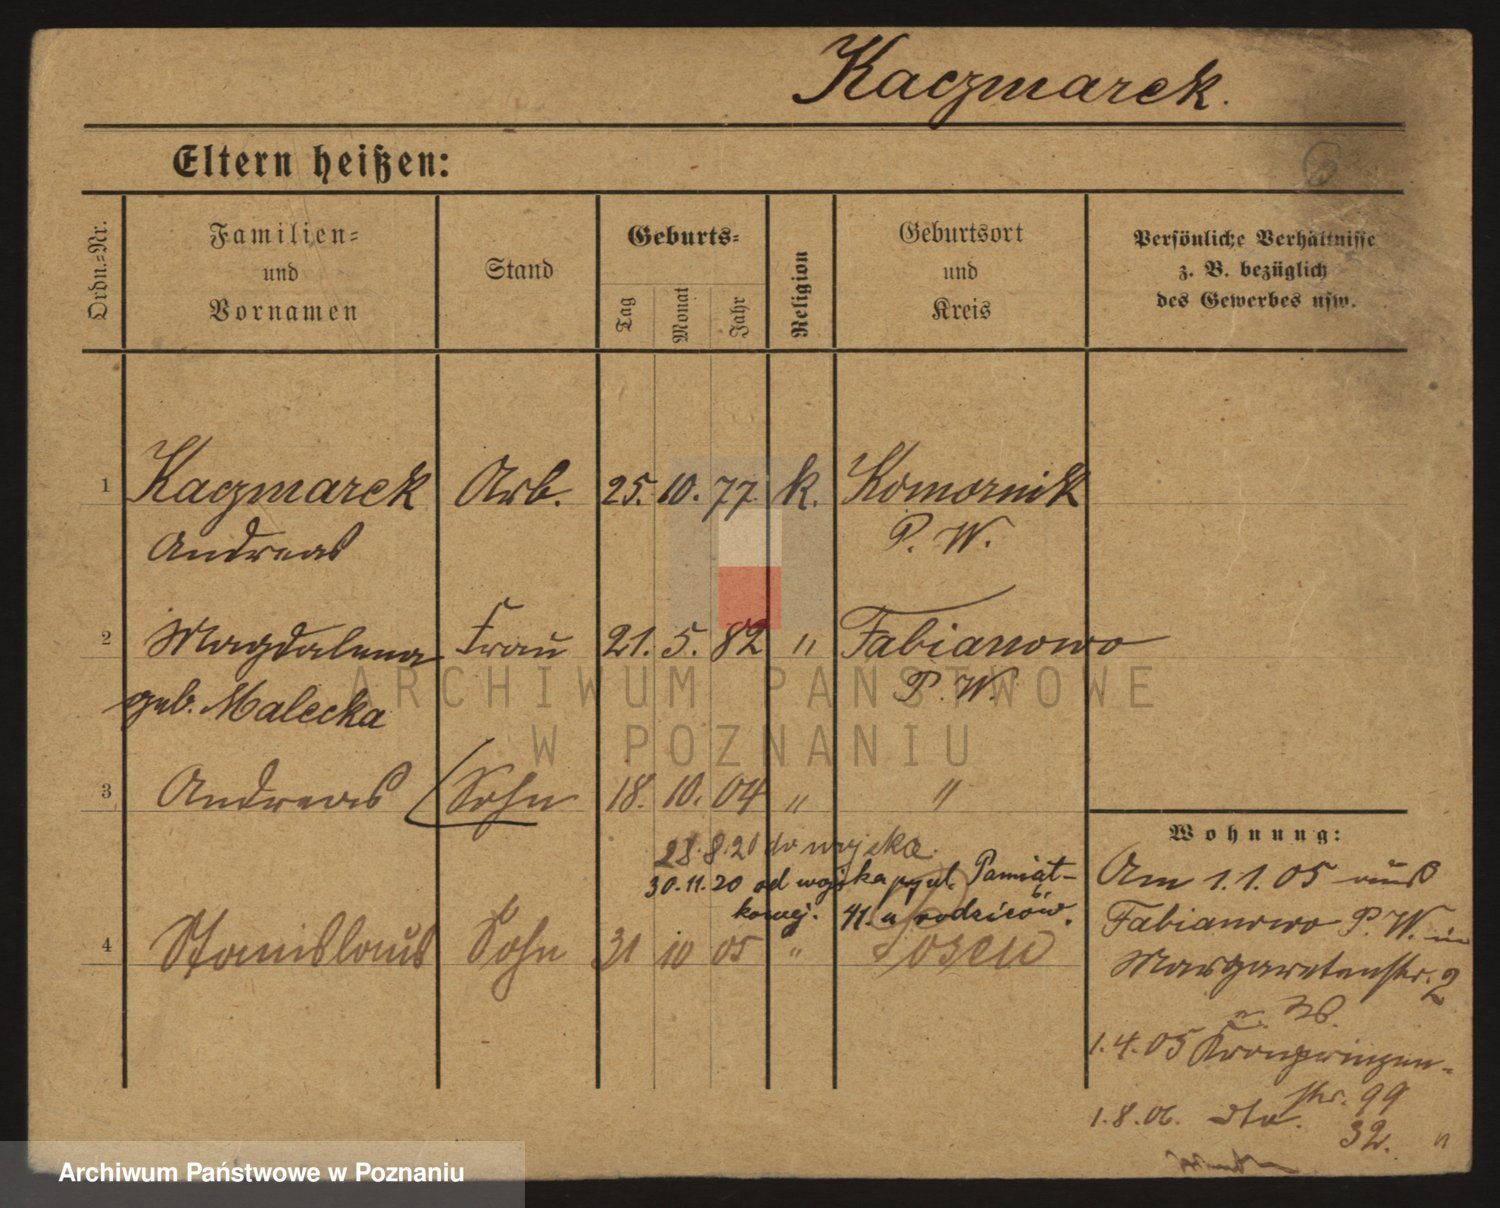 Kaczmarek.
Eltern heißen:
Ordn.=Nr.
Familien= und Vornamen
Stand
Geburts=
Tag
Monat
Jahr
Religion
Geburtsort und Kreis
Persönliche Verhältnisse z. B. bezüglich des Gewerbes usw.
1 Kaczmarek Arb. 25. 10. 77 k. Komornik
Andreas P. W.
2 Magdalena Frau 21. 5. 82 " Fabianowo
geb. Malecka P. W.
3 Andreas Sohn 18. 10. 04 " "
28.8.20 do wojska.
30.11.20 od wojska Pamiąt-
kowej. 41. u rodziców.
4 Stanislaus Sohn 31 10 05 " Posen
Wohnung:
Am 1.1.05 aus
Fabianowo P. W. in
Margaretenstr. 2
1.4.05 Kronprinzen-
str. 99
1.8.06. dto. 32. "
ARCHIWUM PAŃSTWOWE
W POZNANIU
Archiwum Państwowe w Poznaniu